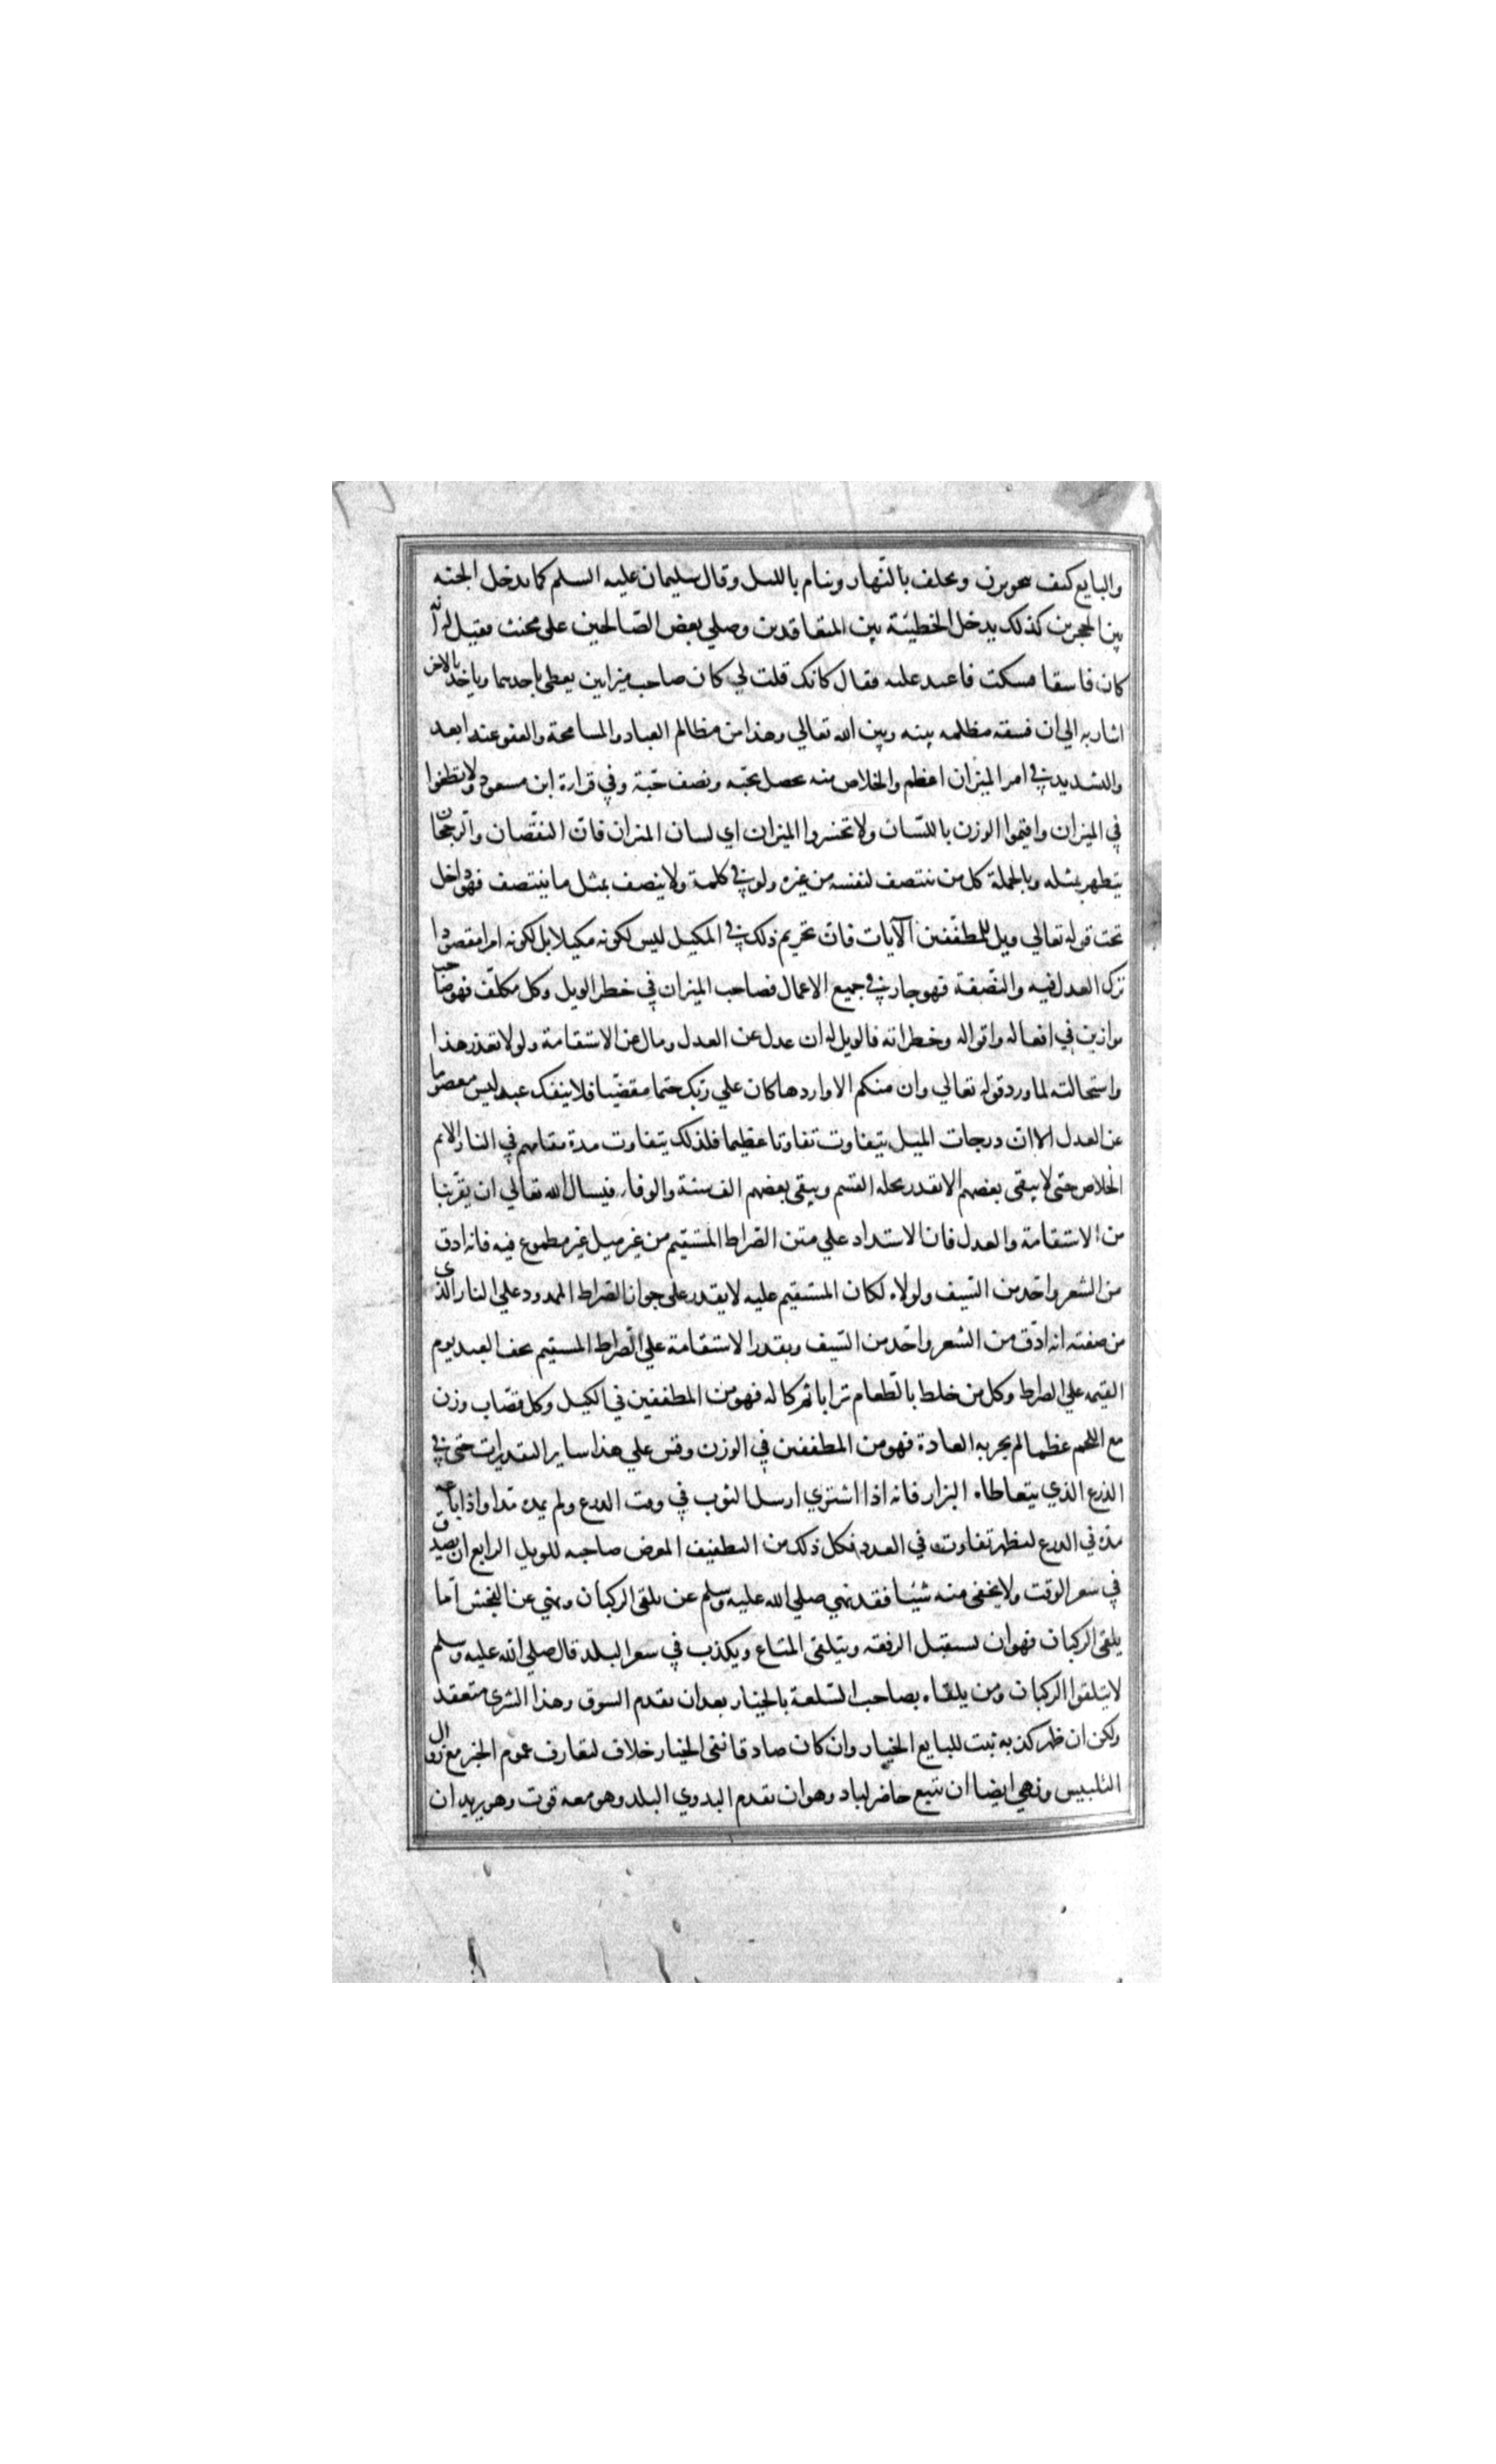 والبايع كيف ينجو يزن ويحلف بالنهار وينام بالليل وقال سليمان عليه السلم كما يدخل الحبة
بين الحجرين كذلك يدخل الخطيئة بين المتعاقدين وصلي بعض الصالحين على مخنث فقيل له انه
كان فاسقا فسكت فاعيد عليه فقال كانك قلت لي كان صاحب ميزانين يعطى باحديهما وياخذ بالاخر
اشار به الي ان فسقه مظلمه بينه وبين الله تعالي وهذا من مظالم العباد والمسامحة والعفو عنه ابعد
والتشديد في امر الميزان اعظم والخلاص منه يحصل بحبه ونصف حبة وفي قراة ابن مسعود ولا تطغوا
في الميزان واقيموا الوزن باللسان ولا تخسروا الميزان اي لسان الميزان فان النقصان والرجحان
يتطهر بمثله وبالجملة كل من ينتصف لنفسه من غيره ولو في كلمة ولا ينصف بمثل ما ينتصف فهو داخل
تحت قوله تعالي ويل للمطففين الآيات فان تحريم ذلك في المكيل ليس لكونه مكيلا بل لكونه امرا مقصودا
ترك العدل فيه والنصفة فهو جار في جميع الاعمال فصاحب الميزان في خطر الويل وكل مكلف فهو صاحب
موازين في افعاله واقواله وخطراته فالويل له ان عدل عن العدل ومال عن الاستقامة ولولا تعذر هذا
واستحالته لما ورد قوله تعالي وان منكم الا واردها كان علي ربك حتما مقضيا فلا ينفك عبد ليس معصوما
عن العدل الا ان درجات الميل يتفاوت تفاوتا عظيما فلذلك يتفاوت مدة مقامهم في النار الا بم
الخلاص حتى لا يبقى بعضهم الا بقدر تحله القسم ويبقى بعضهم الف سنة والوفا فيسال الله تعالي ان يقربنا
من الاستقامة والعدل فان الاستداد علي متن الصراط المستقيم من غير ميل غير مطموع فيه فانه ادق
من الشعر واحد من السيف ولولاه لكان المستقيم عليه لا يقدر على جواز الصراط الممدود علي النار الذي
من صفته انه ادق من الشعر واحد من السيف وبقدر الاستقامة علي الصراط المستقيم يخف العبد يوم
القيمه علي الصراط وكل من خلط بالطعام ترابا ثم كاله فهو من المطففين في الكيل وكل قصاب وزن
مع اللحم عظما لم يجر به العادة فهو من المطففين في الوزن وقس علي هذا ساير التقديرات حتى في
الذرع الذي يتعاطاه البزار فانه اذا اشتري ارسل الثوب في وقت الذرع ولم يمده مدا واذا باعه
مده في الذرع ليظهر تفاوت في العدد فكل ذلك من التطفيف المعرض صاحبه للويل الرابع ان يصدق
في سعر الوقت ولا يخفى منه شيئا فقد نهي صلي الله عليه وسلم عن تلقى الركبان ونهي عن النجش اما
تلقى الركبان فهو ان يستقبل الرفقه ويتلقى المتاع ويكذب في سعر البلد قال صلي الله عليه وسلم
لا يتلقوا الركبان ومن يلقاه بصاحب السلعة بالخيار بعد ان يقدم السوق وهذا الشرى منعقد
ولكن ان ظهر كذبه ثبت للبايع الخيار وان كان صادقا نفى الخيار خلاف لتعارف عموم الخبر مع زوال
التلبيس ونهي ايضا ان تبيع حاضر لباد وهو ان يقدم البدوي البلد وهو معه قوت وهو يريد ان